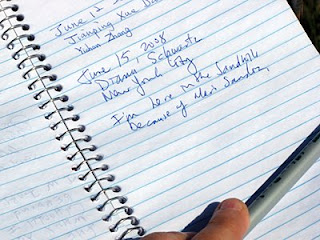 June 12
Jianping Xue
Yishan Zhang
June 15, 2008
Diana Schwartz
New York City
I'm here in the Sandhills
because of Mari Sandoz,